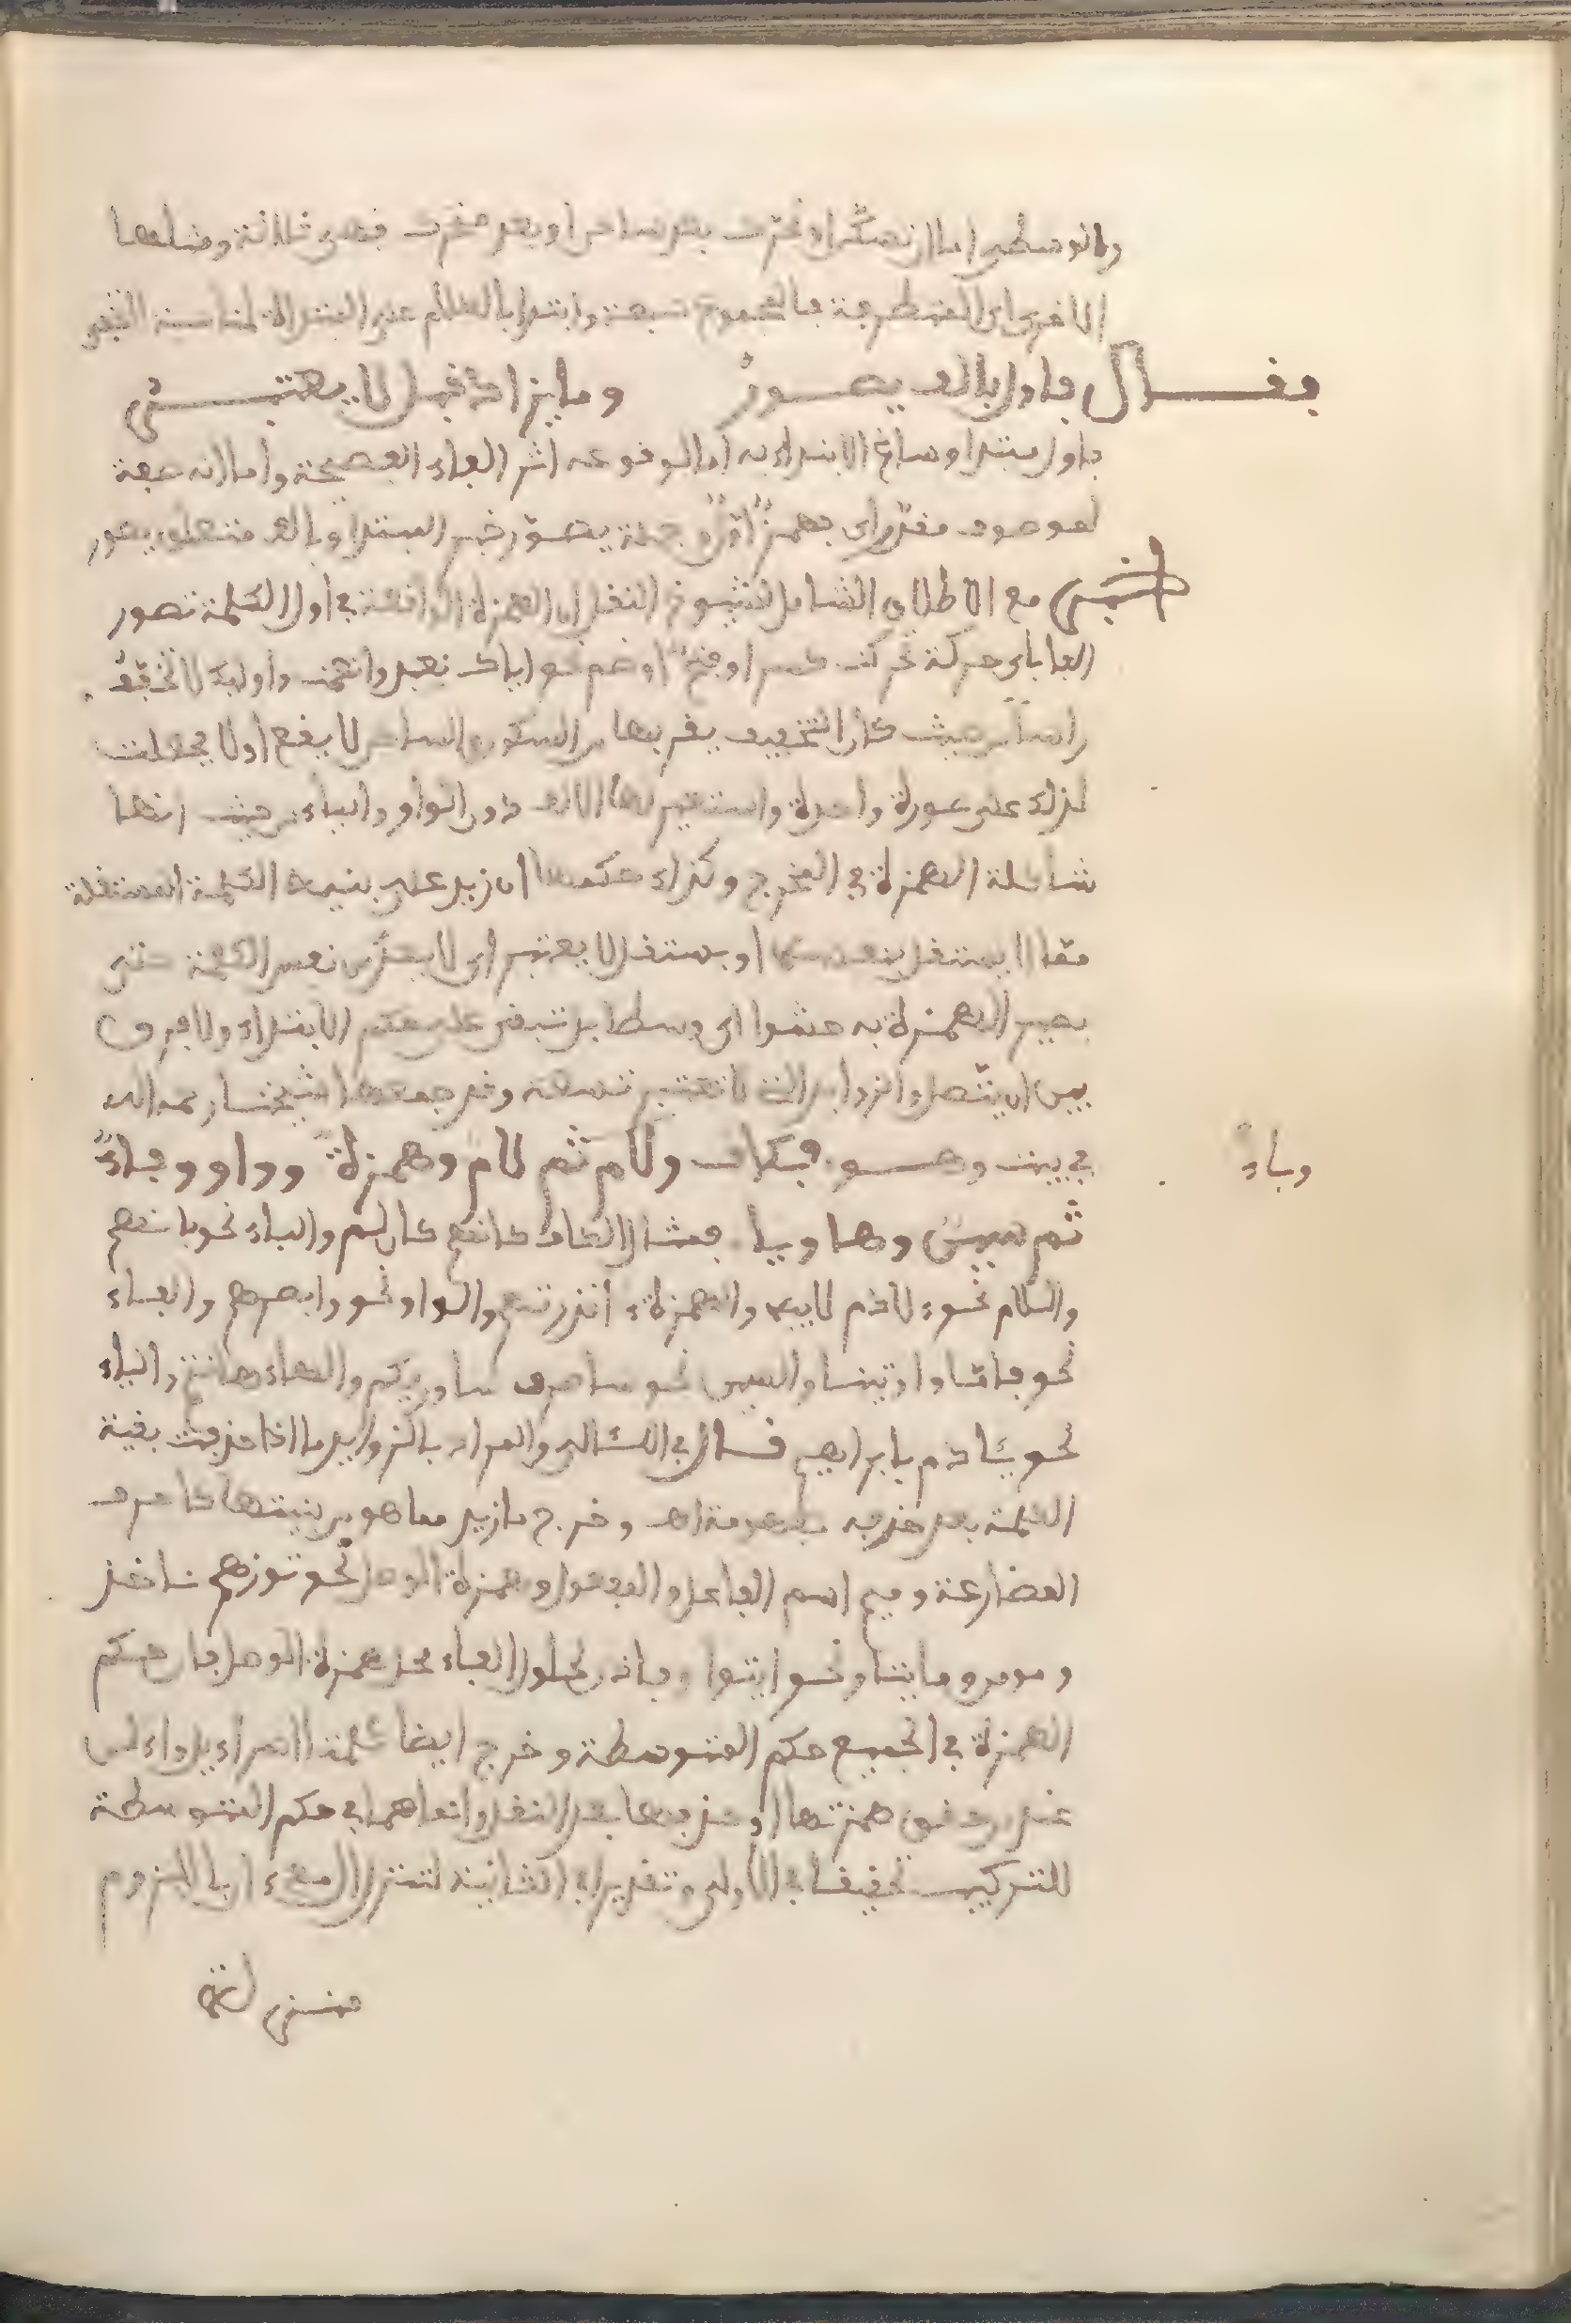 والوسطى اما ان تسكن او تحرك بعد ساكن او بعد محرك فهي ثلاثة ومثلها
الاخرى اي المتطرفة فالمجموع سبعة وابتدا بالكلام على المبتداة لمناسبة
فقال فاول بالف يصور وما يزاد قبل لا يعتبر
فاول مبتدا وساغ الابتداء به اما لوقوعه اثر الفاء الفصيحة واما لانه صفة
لموصوف مقدر اي فهمز اول وجملة يصور خبر المبتدا وبالف متعلق بيصور
اخبر مع الاطلاق الشامل لشيوخ النقل ان الهمزة الواقعة في اول الكلمة تصور
الفا باي حركة تحركت كسر او فتح او ضم نحو اياك نعبد وانعمت واوليك لا تخفف
راسا من حيث كان التخفيف يقربها من السكون والساكن لا يقع اولا فجعلت
لذلك على صورة واحدة واستعير لها الالف دون الواو والياء من حيث انها
شاكلة الهمزة في المخرج وكذلك حكمها ان زيد على بنية الكلمة المستقلة
مما لا يستقل بنفسه او يستقل لا يعتبر اي لا يعد من نفس الكلمة حتى
يصير الهمزة به حشوا اي وسطا بل تبقى على حكم الابتداء ولا فرق
بين ان يتصل والزوايد التي لا تعتبر تسعة وقد جمعها شيخنا رحمه الله
في بيت وهو فكاف ولام ثم لام وهمزة وواو وفاء
وباء
ثم سين وها ويا فمثال الكاف كانهم كان لم والباء نحو بانهم
واللام نحو لادم لاييه والهمزة ءانذرتهم والواو نحو وابصرهم والفاء
نحو فامنا واوتينا والسين نحو ساصرف ساوريكم والهاء هانتم والياء
نحو يئادم يابراهيم قال في اللئالي والمراد بالزوايد ما اذا حذفت بقية
الكلمة بعد حذفه مفهومة اهـ وخرج ما زيد مما هو من بنيتها كاحرف
المضارعة وميم اسم الفاعل والمفعول وهمزة الوصل نحو تؤزهم ناخذ
ومومن وماتيا ونحو ايتوا وفاتوا لحلول الفاء محل همزة الوصل فان حكم
الهمزة في الجميع حكم المتوسطة وخرج ايضا كلمة الاسراءيل واءلـن
عند من حقق همزتها او حذفها بعد النقل وانما هما في حكم المتوسطة
للتركيب تحقيقا في الاولى وتقديرا في الثانية لتنزل المعرف بال للزوم